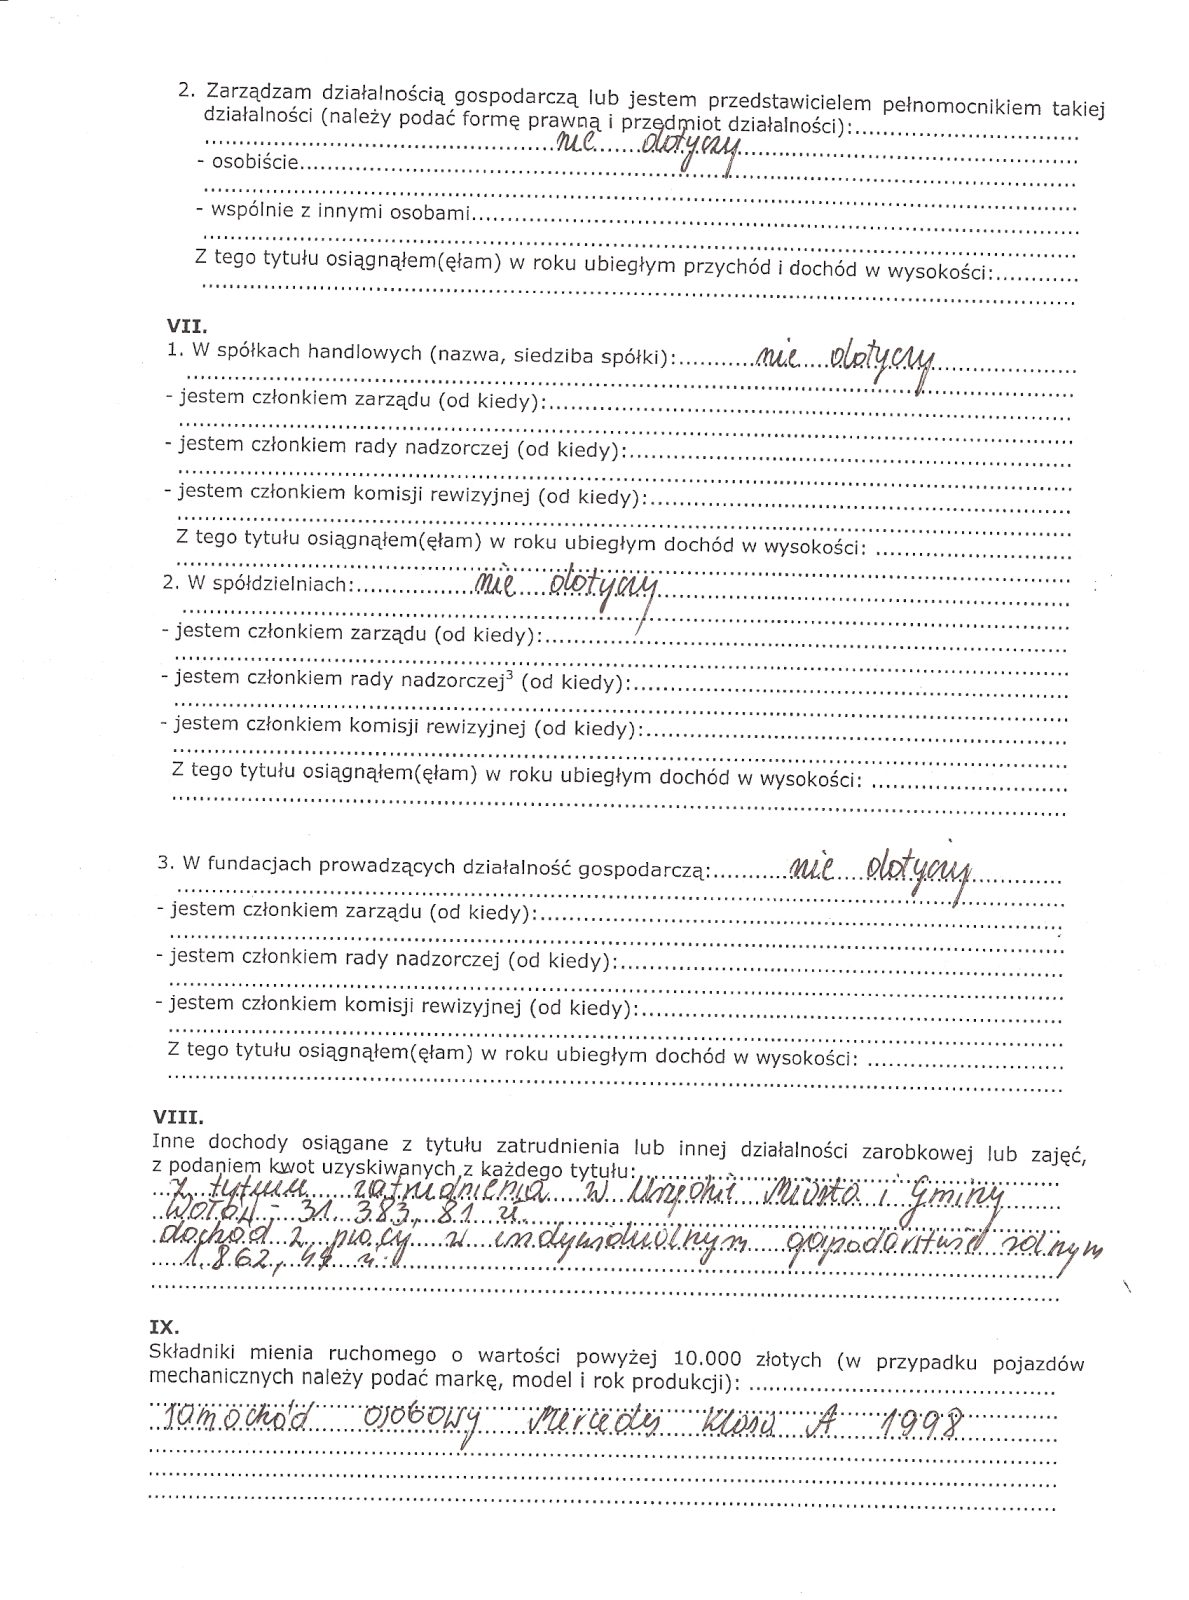 2. Zarządzam działalnością gospodarczą lub jestem przedstawicielem pełnomocnikiem takiej
działalności (należy podać formę prawną i przedmiot działalności):
nie dotyczy
- osobiście
- wspólnie z innymi osobami
Z tego tytułu osiągnąłem(ęłam) w roku ubiegłym przychód i dochód w wysokości:
VII.
1. W spółkach handlowych (nazwa, siedziba spółki): nie dotyczy
- jestem członkiem zarządu (od kiedy):
- jestem członkiem rady nadzorczej (od kiedy):
- jestem członkiem komisji rewizyjnej (od kiedy):
Z tego tytułu osiągnąłem(ęłam) w roku ubiegłym dochód w wysokości:
2. W spółdzielniach: nie dotyczy
- jestem członkiem zarządu (od kiedy):
- jestem członkiem rady nadzorczej³ (od kiedy):
- jestem członkiem komisji rewizyjnej (od kiedy):
Z tego tytułu osiągnąłem(ęłam) w roku ubiegłym dochód w wysokości:
3. W fundacjach prowadzących działalność gospodarczą: nie dotyczy
- jestem członkiem zarządu (od kiedy):
- jestem członkiem rady nadzorczej (od kiedy):
- jestem członkiem komisji rewizyjnej (od kiedy):
Z tego tytułu osiągnąłem(ęłam) w roku ubiegłym dochód w wysokości:
VIII.
Inne dochody osiągane z tytułu zatrudnienia lub innej działalności zarobkowej lub zajęć,
z podaniem kwot uzyskiwanych z każdego tytułu:
z tytułu zatrudnienia w Urzędzie Miasta i Gminy
Wołów - 31.383,81 zł.
dochód z pracy w indywidualnym gospodarstwie rolnym
1.862,49 zł.
IX.
Składniki mienia ruchomego o wartości powyżej 10.000 złotych (w przypadku pojazdów
mechanicznych należy podać markę, model i rok produkcji):
samochód osobowy Mercedes Klasa A 1998